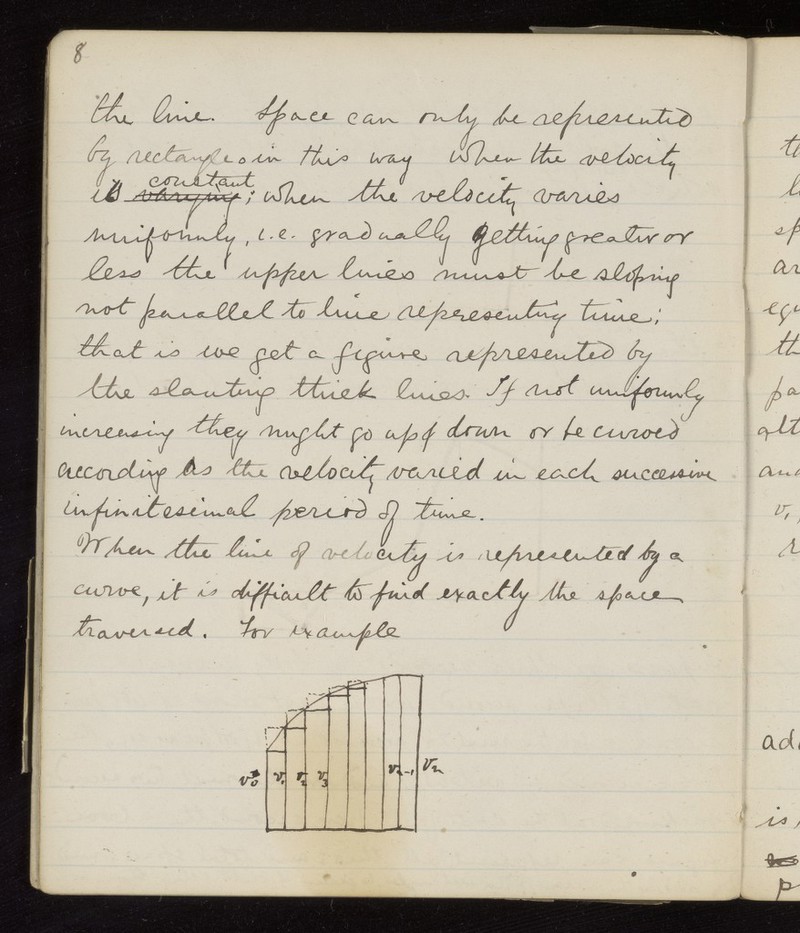 8
the line. Space can only be represented
by rectangles in this way when the velocity
is varying constant; when the velocity varies
uniformly, i.e. gradually getting greater or
less the upper lines must be sloping
not parallel to line representing time;
that is we get a figure represented by
the slanting thick lines. If not uniformly
increasing they might go up & down or be curved
according as the velocity varied in each successive
infinitesimal period of time.
When the line of velocity is represented by a
curve, it is difficult to find exactly the space
traversed. For example
v0 v1 v2 v3 vn-1 vn